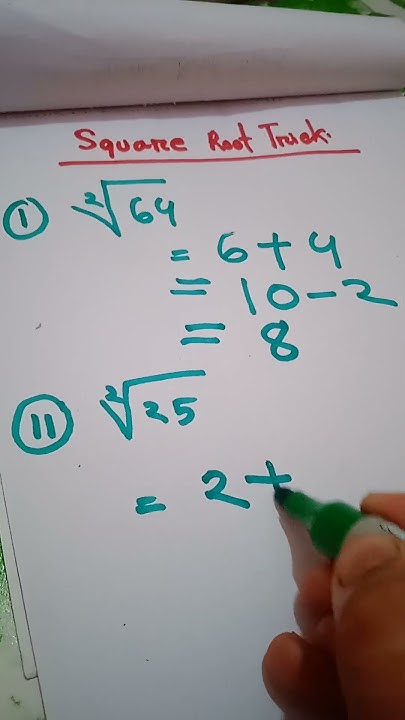 Square Root Trick.
I ²√64
= 6 + 4
= 10 - 2
= 8
II ²√25
= 2 +